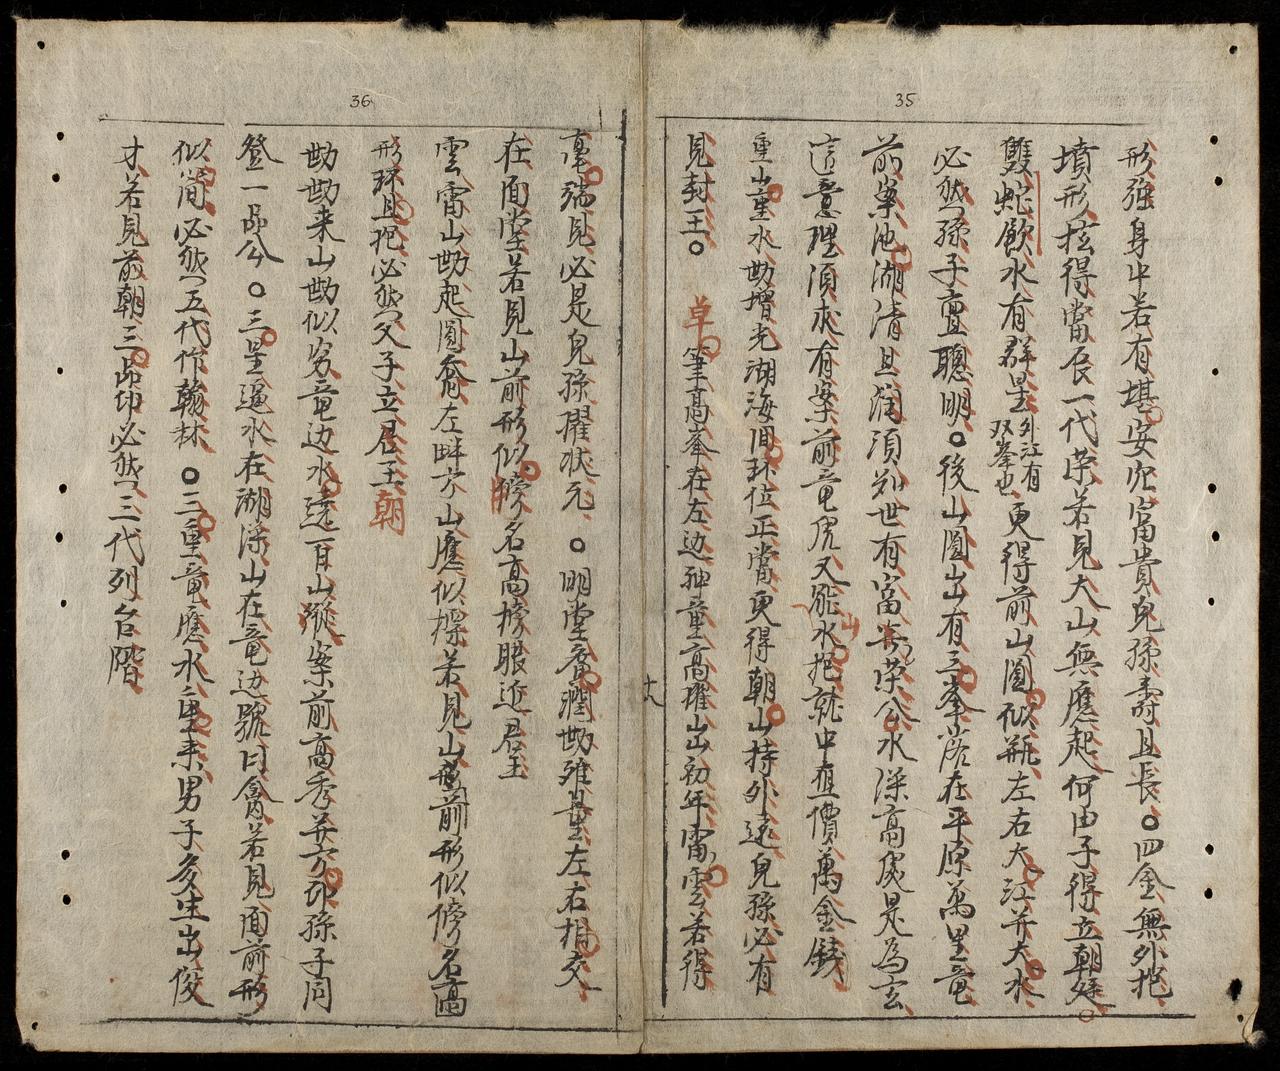 35
形強身中若有堪安穴富貴兒孫壽且長○四金無外抱
墳形拡得當辰一代荣若見大山無應起何由子得立朝廷
雙蛇飲水有群星外江有双峯也更得前山圓似瓶左右大江并大水
必然孫子亶聰明○後山圓出有三峯落在平原萬里竜
前案池湖清且润須知世有富無荣公水深高処是為玄
這意理須求有案前竜虎又能水抱就中值價萬金錢
重山重水勘增光湖海囬环位正當更得朝山持外遠兒孫必有
見封王○草筆高峯在左边神童高擢出初年雷雲若得
36
毫端見必是兒孫擢状元○明堂廣濶勘雖量左右相交
在面堂若見山前形似榜名高榜眼近君王
雲雷山勘起圓脊左畔方山應似標若見山前形似榜名高
形环且抱必然父子立君王朝
勘勘来山勘似穷竜边水遠百山漎案前高秀并方印孫子同
登一品公○三星逼水在湖深山在竜边號曰禽若見面前形
似简必然五代作翰林○三重竜應水重来男子多生出俊
才若見前朝三品印必然三代列台階